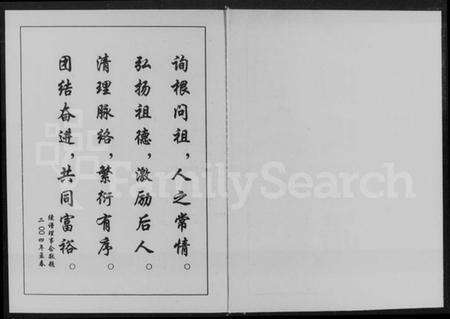 询根问祖，人之常情。
弘扬祖德，激励后人。
清理脉络，繁衍有序。
团结奋进，共同富裕。
续谱理事会敬题
二〇〇四年孟春
FamilySearch